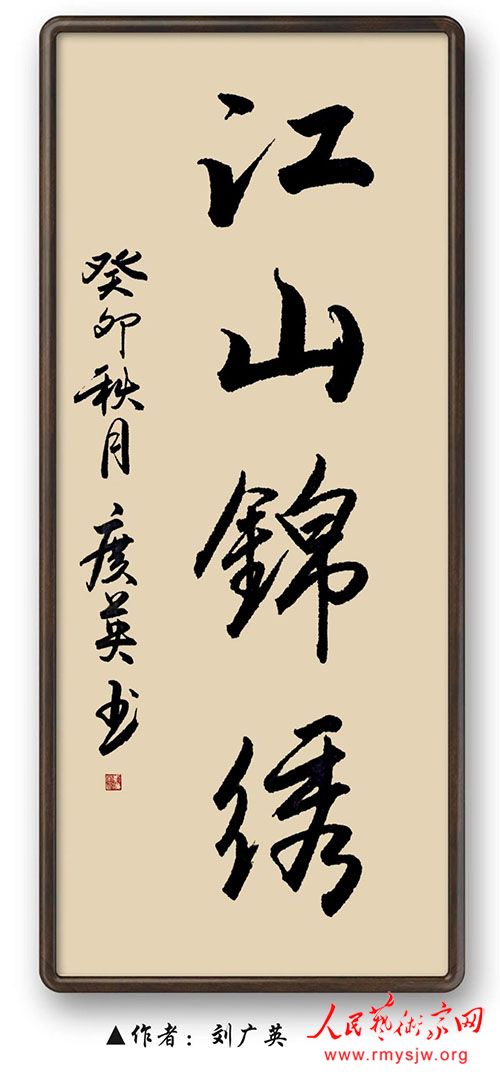 江山錦绣
癸卯秋月 廣英书
▲作者：刘广英
人民藝術家网
www.rmysjw.org